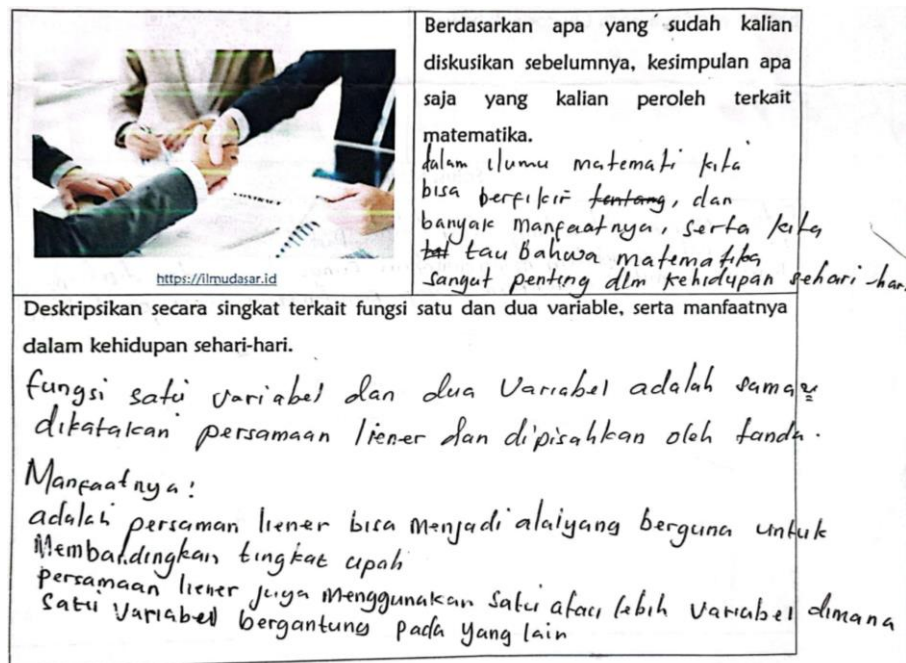 Berdasarkan apa yang sudah kalian
diskusikan sebelumnya, kesimpulan apa
saja yang kalian peroleh terkait
matematika.
dalam ilumu matemati kita
bisa berfikir tentang, dan
banyak manfaatnya, serta kita
tau Bahwa matematika
sangat penting dlm kehidupan sehari-hari
CONTRACT
https://ilmudasar.id
Deskripsikan secara singkat terkait fungsi satu dan dua variable, serta manfaatnya
dalam kehidupan sehari-hari.
fungsi satu variabel dan dua variabel adalah sama2
dikatakan persamaan liener dan dipisahkan oleh tanda.
Manfaatnya:
adalah persaman liener bisa menjadi alaiyang berguna untuk
Membandingkan tingkat upah
persamaan liener juga menggunakan satu atau lebih variabel dimana
satu variabel bergantung pada yang lain